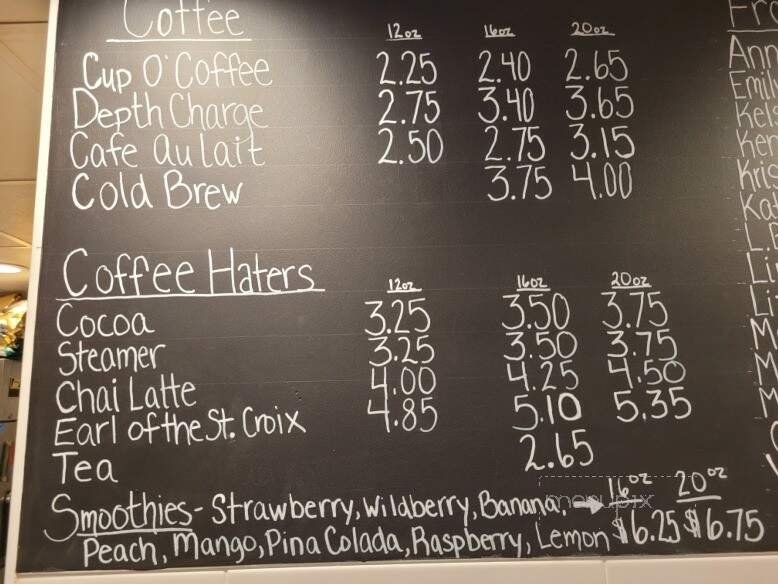 Coffee 12oz 16oz 20oz
Cup O' Coffee 2.25 2.40 2.65
Depth Charge 2.75 3.40 3.65
Cafe Au Lait 2.50 2.75 3.15
Cold Brew 3.75 4.00
Coffee Haters 12oz 16oz 20oz
Cocoa 3.25 3.50 3.75
Steamer 3.25 3.50 3.75
Chai Latte 4.00 4.25 4.50
Earl of the St. Croix 4.85 5.10 5.35
Tea 2.65
Smoothies - Strawberry, Wildberry, Banana, → 16oz 20oz
Peach, Mango, Pina Colada, Raspberry, Lemon $6.25 $6.75
menupix